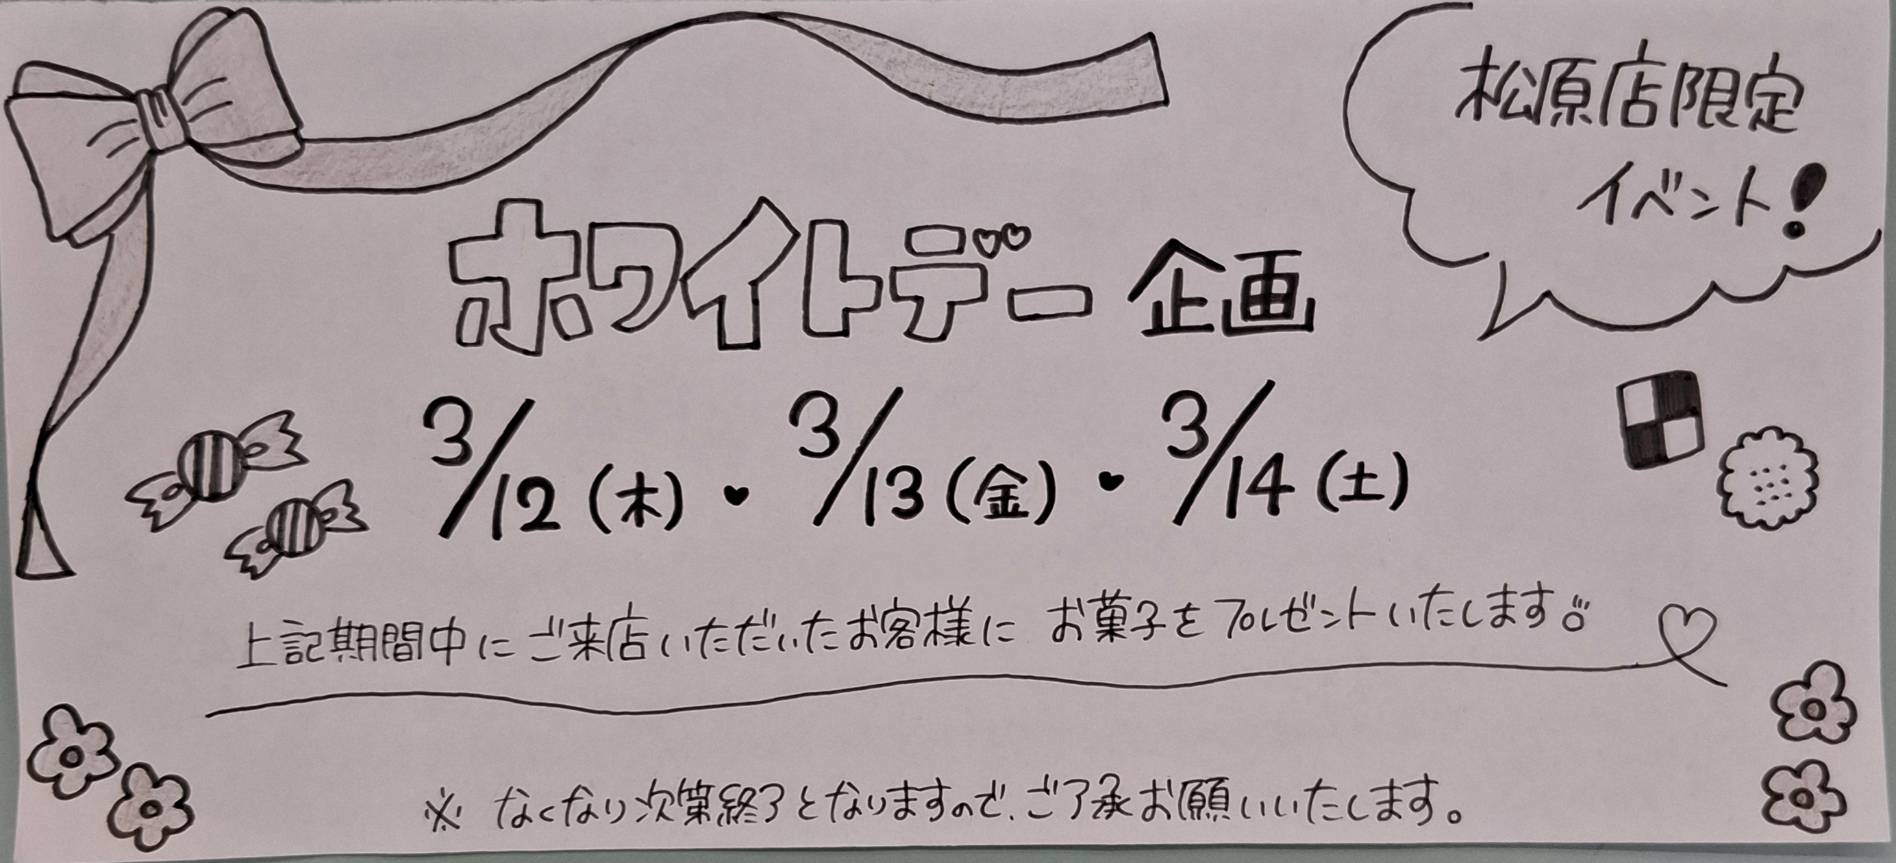 松原店限定
イベント!
ホワイトデー企画
3/12(木)・3/13(金)・3/14(土)
上記期間中にご来店いただいたお客様に お菓子をプレゼントいたします
※ なくなり次第終了となりますので、ご了承お願いいたします。